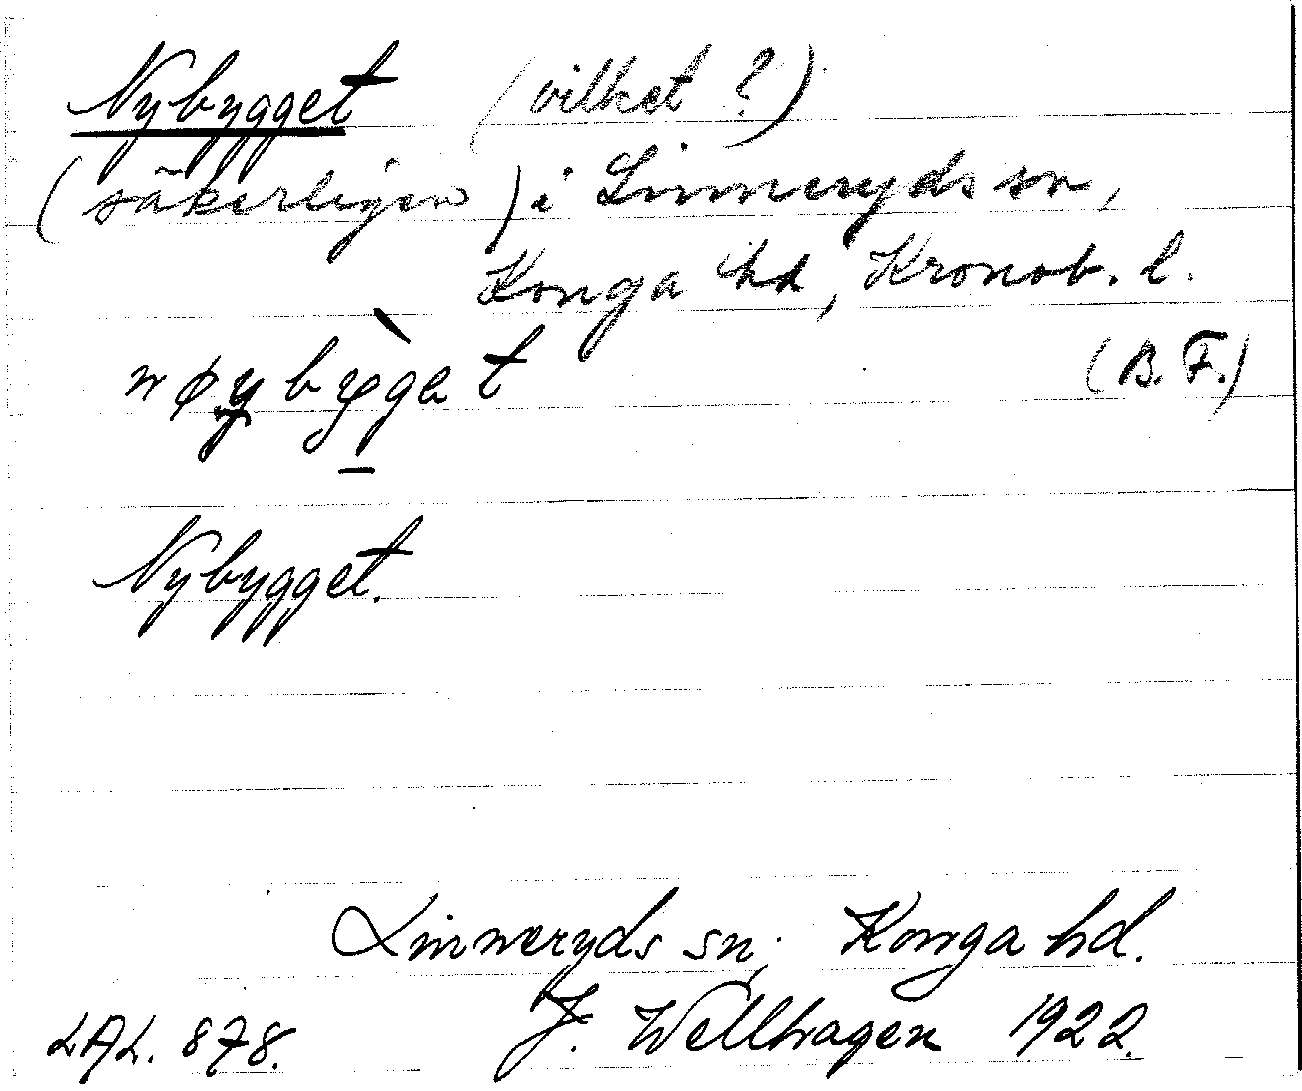 Nybygget (vilket ?)
(säkerligen) i Linneryds sn,
Konga hd, Kronob. l.
nøybỳget (B. F.)
Nybygget.
Linneryds sn; Konga hd.
LAL. 878. J. Wellhagen 1922.